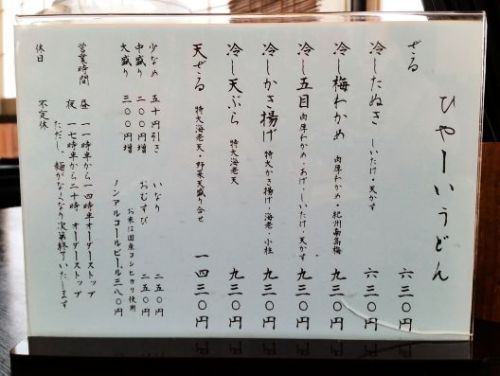 ひやーいうどん
ざる 六三〇円
冷したぬき しいたけ・天かす 六三〇円
冷し梅わかめ 肉厚わかめ・紀州南高梅 九三〇円
冷し五目 肉厚わかめ・あげ・しいたけ・天かす 九三〇円
冷しかき揚げ 特大かき揚げ・海老・小柱 九三〇円
冷し天ぷら 特大海老天 九三〇円
天ざる 特大海老天・野菜天盛り合せ 一四三〇円
少なめ 五十円引き
中盛り 二〇〇円増
大盛り 三〇〇円増
いなり 二五〇円
おむすび 二五〇円
お米は国産コシヒカリ使用
ノンアルコールビール 三八〇円
営業時間 昼 一一時半から一四時半オーダーストップ
夜 一七時半から二十時 オーダーストップ
ただし、麺がなくなり次第終了いたします
休日 不定休